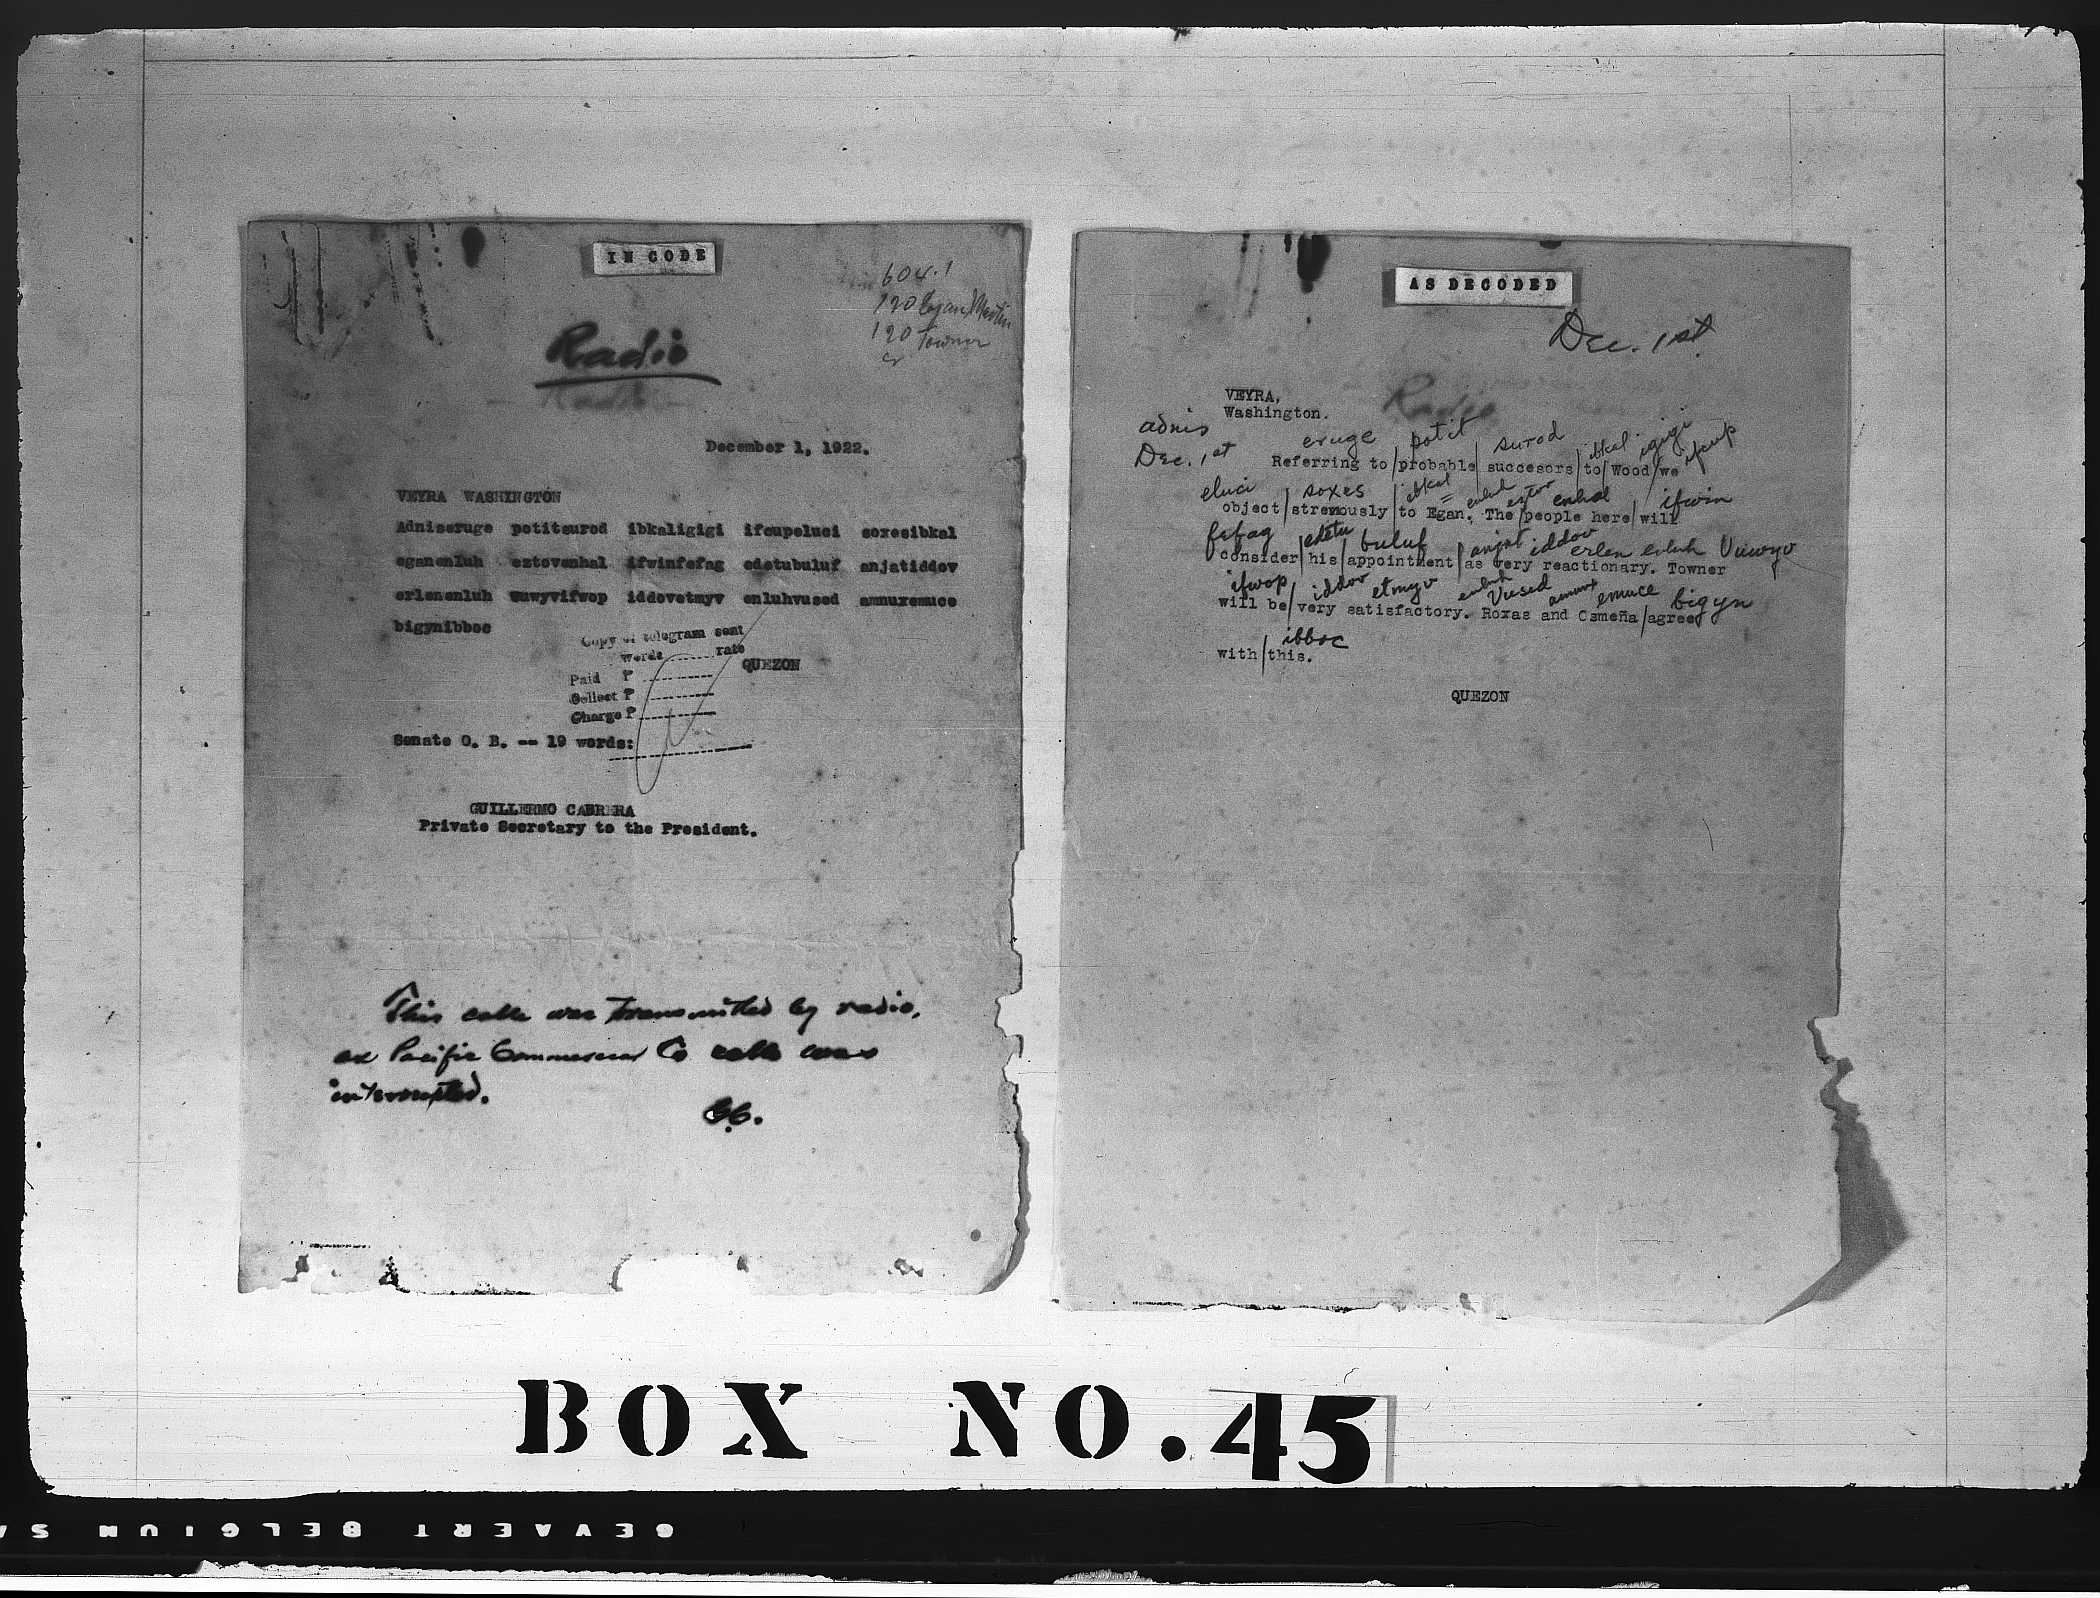 IN CODE
604.1
120 Egan, Martin
120 Towner
Radio
December 1, 1922.
VEYRA WASHINGTON
Adniseruge potitsurod ibkaligigi ifcupeluci soxesibkal
eganenluh eztovenhal ifwinfefag edetubuluf anjatiddov
erlenenluh vuwyvifwop iddovetmyv enluhvused amnuxemuce
bigynibboc
Copy of telegram sent
words ........ rate
QUEZON
Paid ₱ ------------
Collect ₱ ------------
Charge ₱ ------------
Senate O. B. -- 19 words:
GUILLERMO CABRERA
Private Secretary to the President.
This cable was transmitted by radio,
as Pacific Commercial Co cable was
interrupted.
G.C.
AS DECODED
Dec. 1st
VEYRA,
Washington.
Radio
adnis
eruge potit surod ibkal igigi ifcup
Dec. 1st
Referring to/probable/succesors/to/Wood/we
eluci soxes ibkal enluh eztov enhal ifwin
object/strenuously/to Egan. The/people here/will
fefag edetu buluf anjat iddov erlen enluh Vuwyv
consider/his/appointment/as very reactionary. Towner
ifwop iddov etmyv enluh Vused amnux emuce bigyn
will be/very satisfactory. Roxas and Osmeña/agree
ibboc
with/this.
QUEZON
BOX NO. 45
GEVAERT BELGIUM